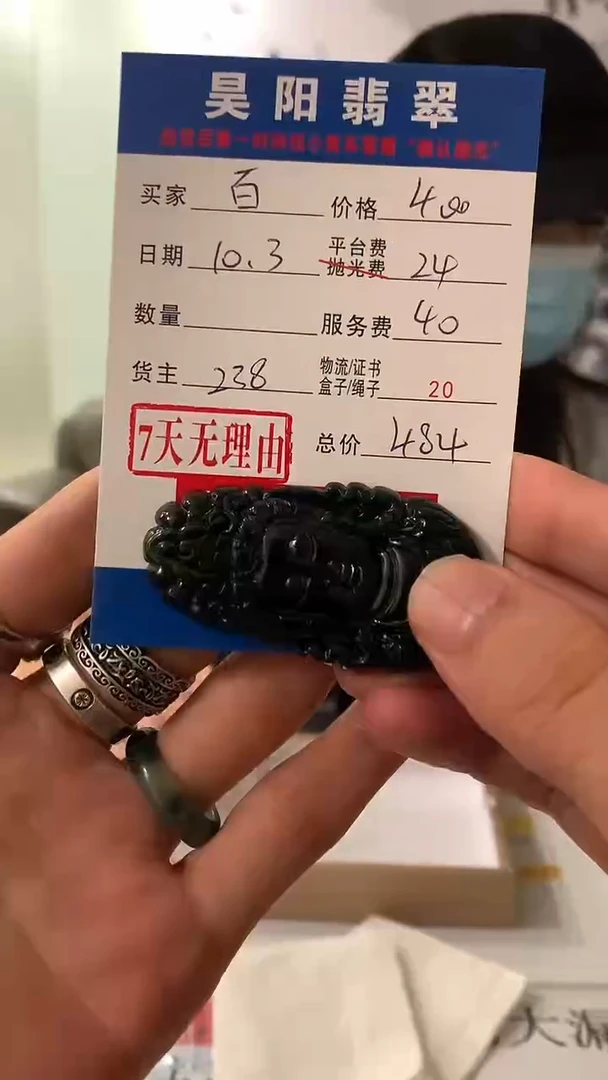 昊阳翡翠
买家 百 价格 400
日期 10.3 平台费 抛光费 24
数量 服务费 40
货主 238 物流/证书 盒子/绳子 20
7天无理由 总价 484